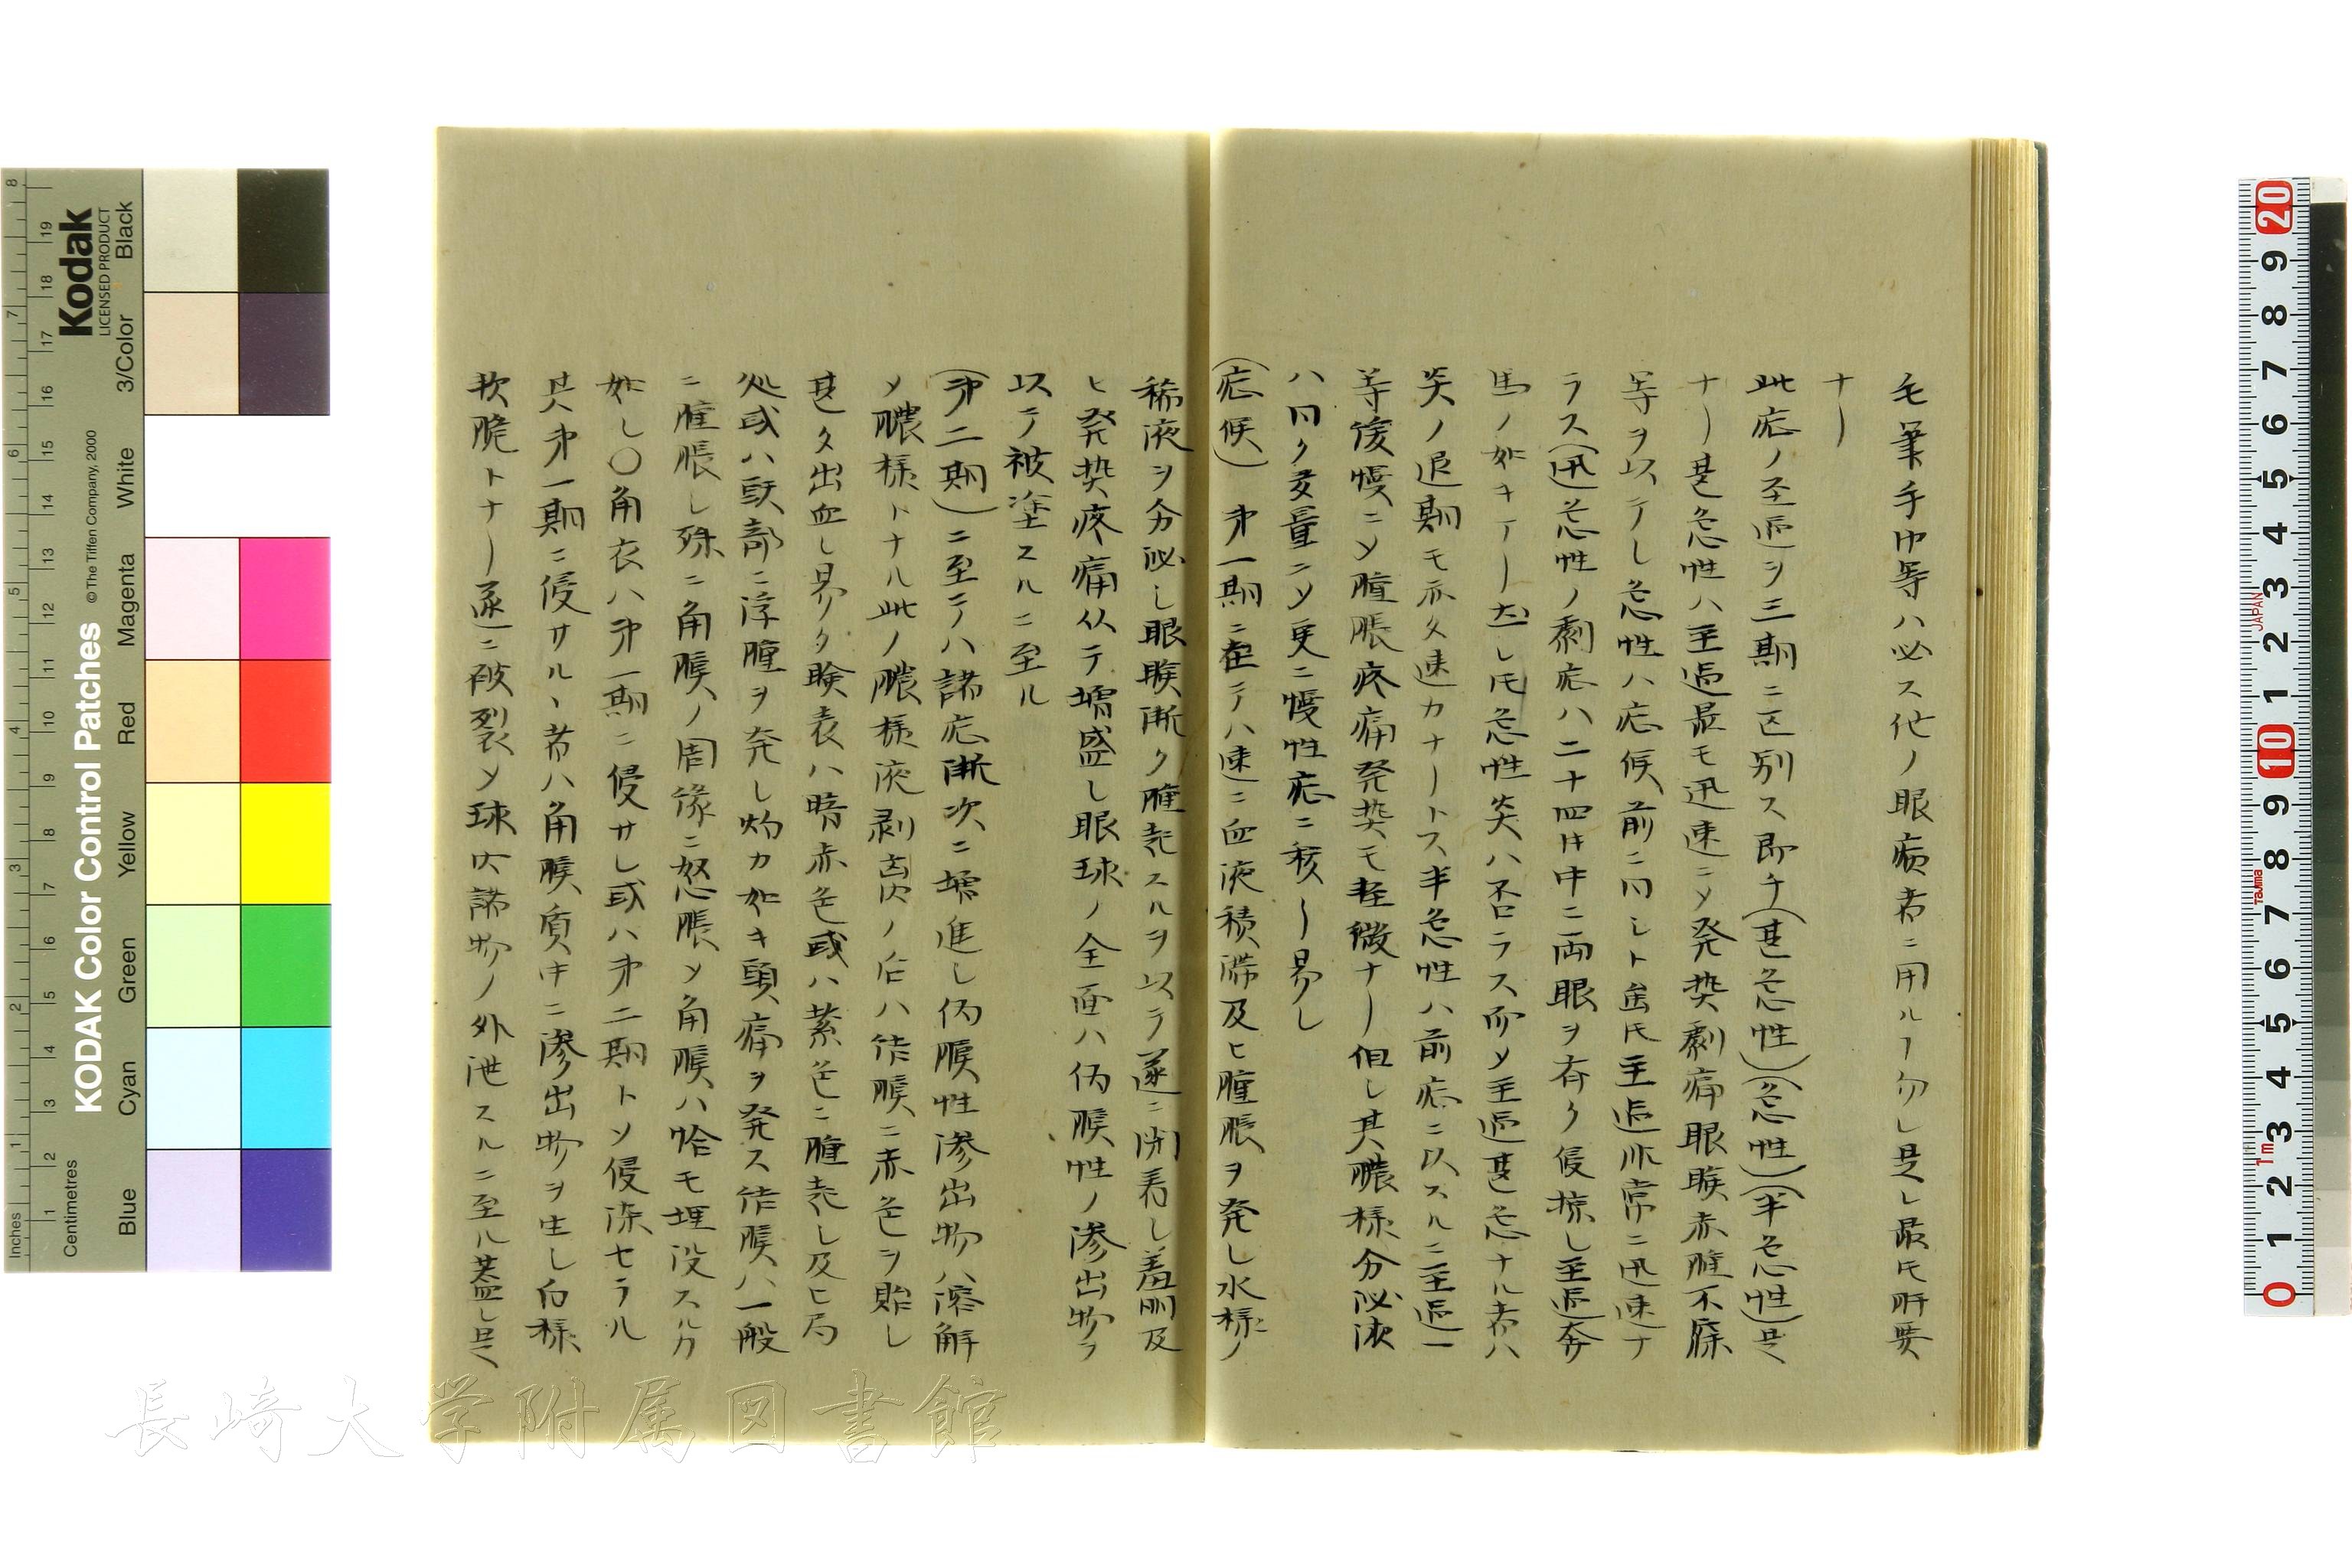 毛筆手巾等ハ必ス他ノ眼病者ニ用ルヿ勿レ是レ最モ肝要
ナリ
此症ノ至過ヲ三期ニ区別ス即チ(甚急性)(急性)(半急性)是
ナリ甚急性ハ至過最モ迅速ニメ発焮劇痛眼瞼赤腫不寐
等ヲ以テシ急性ハ症候前ニ同シト雖圧至過非常ニ迅速ナ
ラス(迅)急性ノ劇症ハ二十四时中ニ両眼ヲ有ク侵掠シ至過奔
馬ノ如キアリ然レ圧急性炎ハ否ラス而メ至過甚急ナル者ハ
炎ノ退期モ亦タ速カナリトス半急性ハ前症ニ以スルニ至過一
等後慢ニメ腫脹疼痛発焮モ軽微ナリ但シ其膿様分泌液
ハ同ク多量ニメ更ニ慢性症ニ移リ易シ
(症候) 第一期ニ在テハ速ニ血液積滞及ヒ腫脹ヲ発シ水様ノ
稀液ヲ分泌シ眼瞼漸ク腫起スルヲ以テ遂ニ閉着シ羞明及
ヒ発焮疼痛从テ増盛シ眼球ノ全面ハ偽膜性ノ滲出物ヲ
以テ被塗スルニ至ル
(第二期)ニ至テハ諸症漸次ニ増進シ偽膜性滲出物ハ溶解
メ膿様トナル此ノ膿様液剥脱ノ后ハ結膜ニ赤色ヲ貽シ
甚タ出血シ易ク瞼表ハ暗赤色或ハ紫色ニ腫起シ及ヒ局
処或ハ頭部ニ浮腫ヲ発シ灼カ如キ頭痛ヲ発ス結膜ハ一般
ニ腫脹シ殊ニ角膜ノ周縁ニ怒脹メ角膜ハ恰モ埋没スルカ
如シ〇角衣ハ第一期ニ侵サレ或ハ第二期トメ侵染セラル
其第一期ニ侵サルヽ者ハ角膜質中ニ滲出物ヲ生シ白様
軟脆トナリ遂ニ破裂メ球内諸物ノ外泄スルニ至ル蓋シ是
長崎大学附属図書館
KODAK Color Control Patches
© The Tiffen Company, 2000
Kodak
LICENSED PRODUCT
Inches
Centimetres
Blue Cyan Green Yellow Red Magenta White 3/Color Black